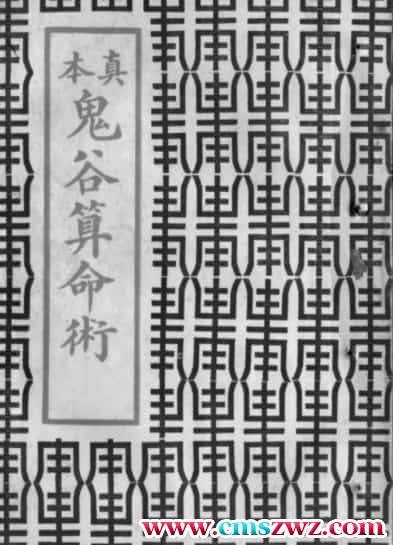 真本
鬼谷算命術
www.cmszwz.com